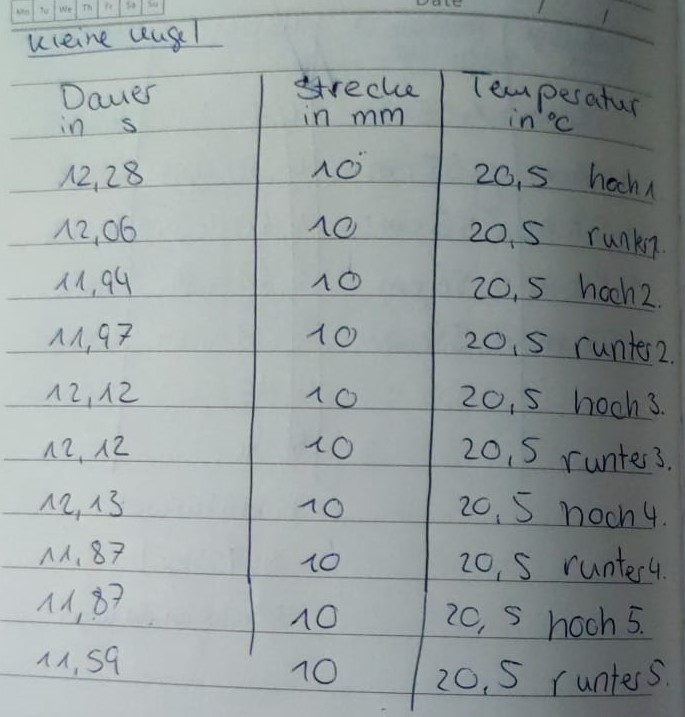 Mo Tu We Th Fr Sa Su
Date / /
Kleine Kugel
Dauer in s Strecke in mm Temperatur in °C
12,28 10 20,5 hoch 1
12,06 10 20,5 runter 1.
11,94 10 20,5 hoch 2.
11,97 10 20,5 runter 2.
12,12 10 20,5 hoch 3.
12,12 10 20,5 runter 3.
12,13 10 20,5 hoch 4.
11,87 10 20,5 runter 4.
11,87 10 20,5 hoch 5.
11,59 10 20,5 runter 5.